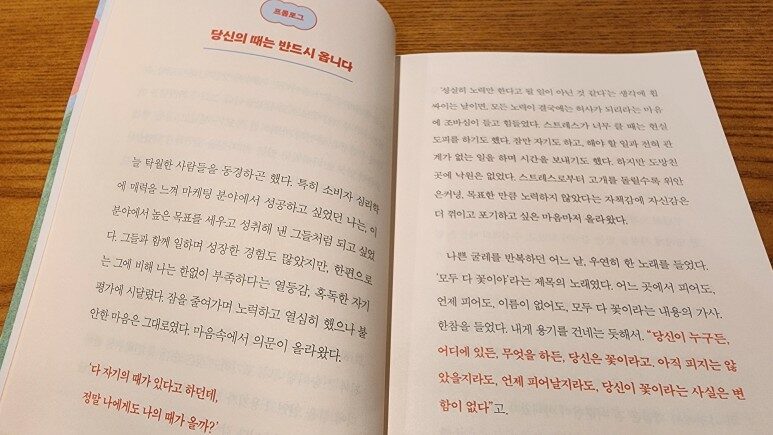 프롤로그
당신의 때는 반드시 옵니다
늘 탁월한 사람들을 동경하곤 했다. 특히 소비자 심리학
에 매력을 느껴 마케팅 분야에서 성공하고 싶었던 나는, 이
분야에서 높은 목표를 세우고 성취해 낸 그들처럼 되고 싶었
다. 그들과 함께 일하며 성장한 경험도 많았지만, 한편으로
는 그에 비해 나는 한없이 부족하다는 열등감, 혹독한 자기
평가에 시달렸다. 잠을 줄여가며 노력하고 열심히 했으나 불
안한 마음은 그대로였다. 마음속에서 의문이 올라왔다.
‘다 자기의 때가 있다고 하던데,
정말 나에게도 나의 때가 올까?’
‘성실히 노력만 한다고 될 일이 아닌 것 같다’는 생각에 휩
싸이는 날이면, 모든 노력이 결국에는 허사가 되리라는 마음
에 조바심이 들고 힘들었다. 스트레스가 너무 클 때는 현실
도피를 하기도 했다. 잠만 자기도 하고, 해야 할 일과 전혀 관
계가 없는 일을 하며 시간을 보내기도 했다. 하지만 도망친
곳에 낙원은 없었다. 스트레스로부터 고개를 돌릴수록 위안
은커녕, 목표한 만큼 노력하지 않았다는 자책감에 자신감은
더 꺾이고 포기하고 싶은 마음마저 올라왔다.
나쁜 굴레를 반복하던 어느 날, 우연히 한 노래를 들었다.
‘모두 다 꽃이야’라는 제목의 노래였다. 어느 곳에서 피어도,
언제 피어도, 이름이 없어도, 모두 다 꽃이라는 내용의 가사.
한참을 들었다. 내게 용기를 건네는 듯해서. “당신이 누구든,
어디에 있든, 무엇을 하든, 당신은 꽃이라고. 아직 피지는 않
았을지라도, 언제 피어날지라도, 당신이 꽃이라는 사실은 변
함이 없다”고.